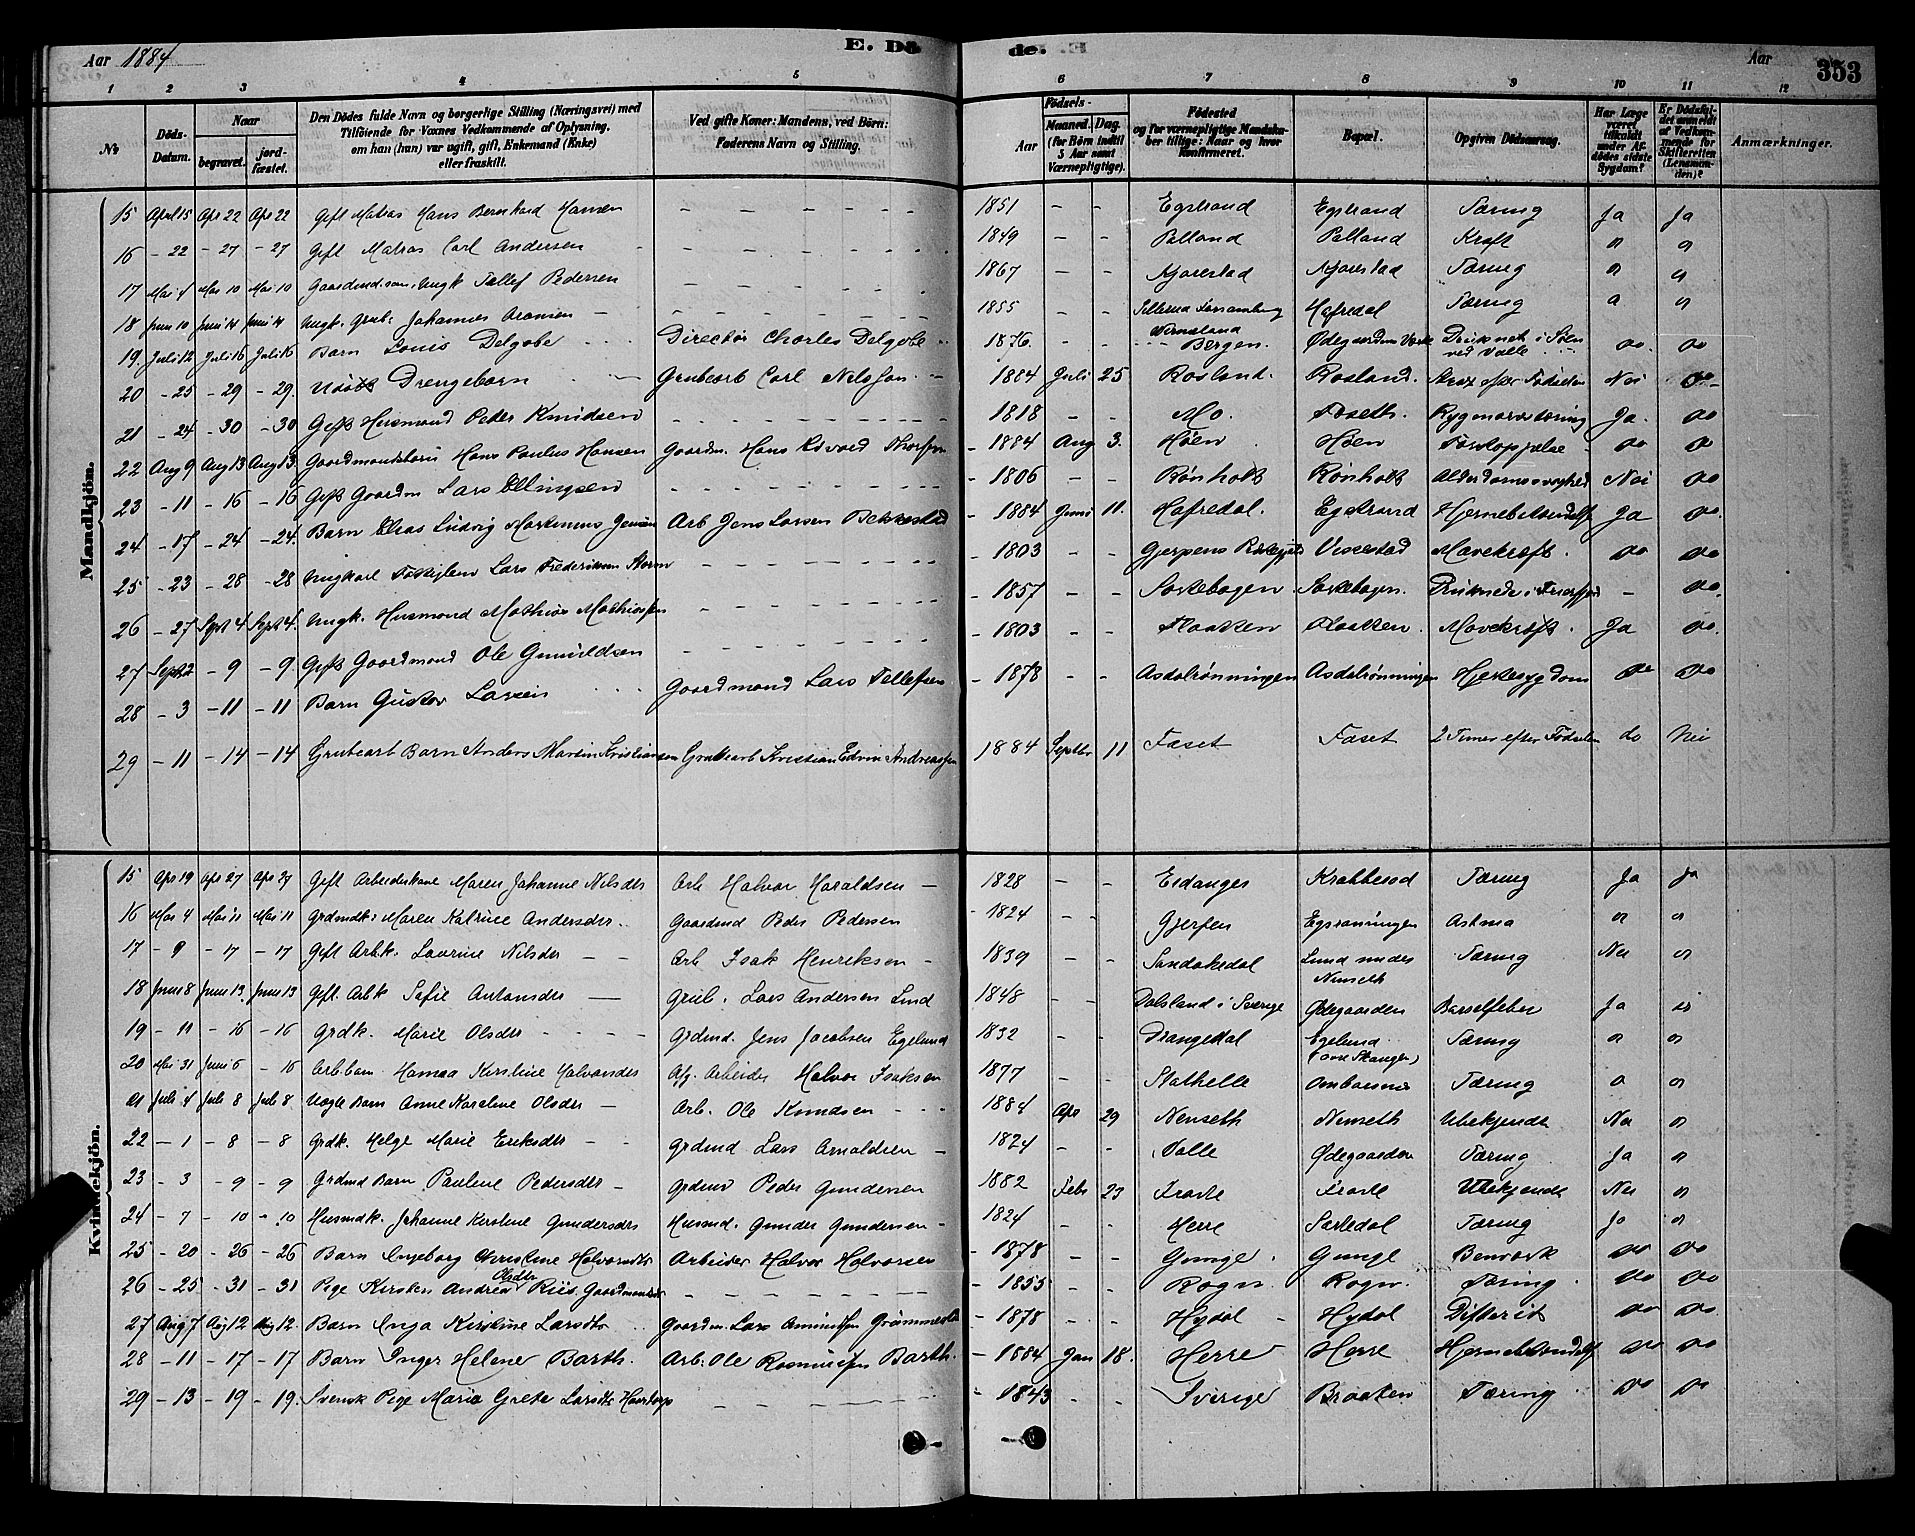 Aar 1884
E. Dö
de.
E.
Aar
353
1 2 3 4 5 6 7 8 9 10 11 12
No
Döds-Datum.
Naar
begravet.
jordfæstet.
Den Dödes fulde Navn og borgerlige Stilling (Næringsvei) med
Tilföiende for Voxnes Vedkommende af Oplysning,
om han (hun) var ugift, gift, Enkemand (Enke)
eller fraskilt.
Ved gifte Koner: Mandens, ved Börn:
Faderens Navn og Stilling.
Födsels-
Aar
Maaned. Dag.
(for Börn indtil 5 Aar samt Værnepligtige).
Födested
og for værnepligtige Mandskaber tillige: Naar og hvor konfirmeret.
Bopæl.
Opgiven Dödsaarsag.
Har Læge været tilkaldt under Afdödes sidste Sygdom?
Er Dödsfaldet anmeldt af Vedkommende for Skifteretten (Lensmanden)?
Anmærkninger.
Mandkjön.
15 April 15 Apr 22 Apr 22 Gift Matros Hans Bernhard Hansen - - 1851 - - Egstrand Egstrand Tæring Ja Ja
16 - 22 - 27 - 27 Gift Matros Carl Andersen 1849 - - Palland Palland Kræft
17 Mai 4 Mai 10 Mai 10 Gaardmd. søn, Ungk Tellef Pedersen - - 1867 - - Kjørestad Kjørestad Tæring
18 Juni 10 Juni 14 Juni 14 Ungk. Grub: Johannes - - 1855 - - Hafredal Tæring
19 Juli 12 Juli 16 Juli 16 Barn Louis Delgobe Directør Charles Delgobe 1876 - - Bergen. Ødegaardens Værk Druknet i Søen ved Valle Do Do
20 - 25 - 29 - 29. Udøbt Drengebarn Grubearb Carl Nilssen 1884 Juli 25 Rosland. Rosland. Strax efter Fødselen Nei Do
21 - 24 - 30 - 30 Gift Husmand Peder Knudsen 1818 - - Mo. Foseth. Rygmarvstæring Ja. Do
22 Aug 9 Aug 13 Aug 13. Gaardmandsbarn Hans Paulus Hansen Gaardm. Hans Edvard - 1884 Aug 3. Høen Høen Forstoppelse Do Do
23 - 11 - 16 - 16 Gift Gaardm Lars Ellingsen - 1806 - - Rønholt Rønholt Alderdomssvaghed Nei Do
24 - 17 - 24 - 24. Barn Elias Ludvig Martinius Jensen Arb Jens Larsen Bekkestad - 1884 Juni 11. Hafredal. Egstrand Ja Do.
25 - 23 - 28 - 28 Ungkarl Lars Frederiksen Storm - 1803 - - Gjerpens Vissestad Mavekræft. Do Do
26 - 27 Sept 4 Sept 4. Ungk. Husmand Mathias Mathiassen - 1857 - - Saltebogen Saltebogen. Druknede i - Do
27 Sept 2 - 9 - 9. Gift Gaardmand Ole Gunuldsen - 1803 - - Flaatten Flaatten. Mavekræft. Ja Do.
28 - 3 - 11 - 11 Barn Gustav Larsen Gaardmand Lars Tellefsen - 1878 - - Asdalrønningen Asdalrønningen Hjertesygdom Do Do
29 - 11 - 14 - 14 Grubearb Barn Anders Martin Kristiansen Grubearb Kristian Edvin Andreassen 1884 Septbr 11 Foset Foset 2 Timer efter Fødselen do Nei
Kvindekjön.
15 Apr 19 Apr 27 Apr 27 Gift Arbeiderkone Maren Johanne Nilsdtr Arb Halvor Haraldsen - 1828 - - Eidanger Krabberød Tæring Ja Ja
16 Mai 4 Mai 11 Mai 11 Grdmdk: Maren Katrine Andersdtr. Gaardmd Peder Pedersen - 1824 - - Gjerpen Egsrønningen Astma
17 - 9 - 17 - 17 Gift Arbk. Laurine Nilsdtr - - Arb Isak Henriksen - 1839 - - Sandøkedal Lund under Nenseth Tæring Nei
18 Juni 8 Juni 13. Juni 13 Gift. Arbk Sofie Antonsdtr - Grub. Lars Andersen Lind 1848 - - Dalsland i Sverige Ødegaarden Barselfeber Ja
19 - 11 - 16 - 16 Grdk. Marie Olsdtr - - - - Grdmd. Jens Jacobsen Egelund 1832 - - Drangedal Egelund Tæring
20 Mai 31 Juni 6 - 16 Arb.barn Hanna Kirstine Halvorsdtr Afg. Arbeider Halvor Isaksen 1877 - - Stathelle Ombordsnes Tæring
21 Juli 4 Juli 8 Juli 8 Uægte Barn Anne Karoline Olsdtr - Arb. Ole Knudsen - - - 1884 Apr 29 Nenseth Nenseth Ubekjendt Nei
22 - 1 - 8 - 8 Grdk. Helge Marie Eriksdtr - - Grdmd Lars Arnoldsen - 1824 - - Valle Ødegaarden Tæring Ja
23 - 3 - 9 - 9 Grdmd Barn Pauline Pedersdtr - Grdmd Peder Gundersen 1882 Febr 23 Ubekjendt Nei
24 - 7 - 10 - 10 Husmdk. Johanne Kirstine Gundersdtr Husmd. Gunder Gundersen - 1824 - - Herre Tæring Ja
25 - 20 - 26 - 26 Barn Ingeborg Christine Halvorsdtr Arbeider Halvor Halvorsen - 1878 - - Gunge Gunge Benværk Do Do
26 - 25 - 31 - 31 Pige Kirsten Andrea Olsdtr Riis. - - - 1855 - - Rogn. Rogn. Tæring Do Do
27 Aug 7 Aug 12 Aug 12. Barn Inga Kirstine Larsdtr Gaardm. Lars - 1878 - - Hydal Hydal Difterit Do Do
28 - 11 - 17 - 17 Barn Inger Helene Barth. Arb: Ole Rasmussen Barth. - 1884 Jan 18. Herre Herre Do Do
29 - 13 - 19 - 19. Svensk Pige Maria Greta Larsdtr - - - 1843 - - Sverige Braaten Tæring Do Do